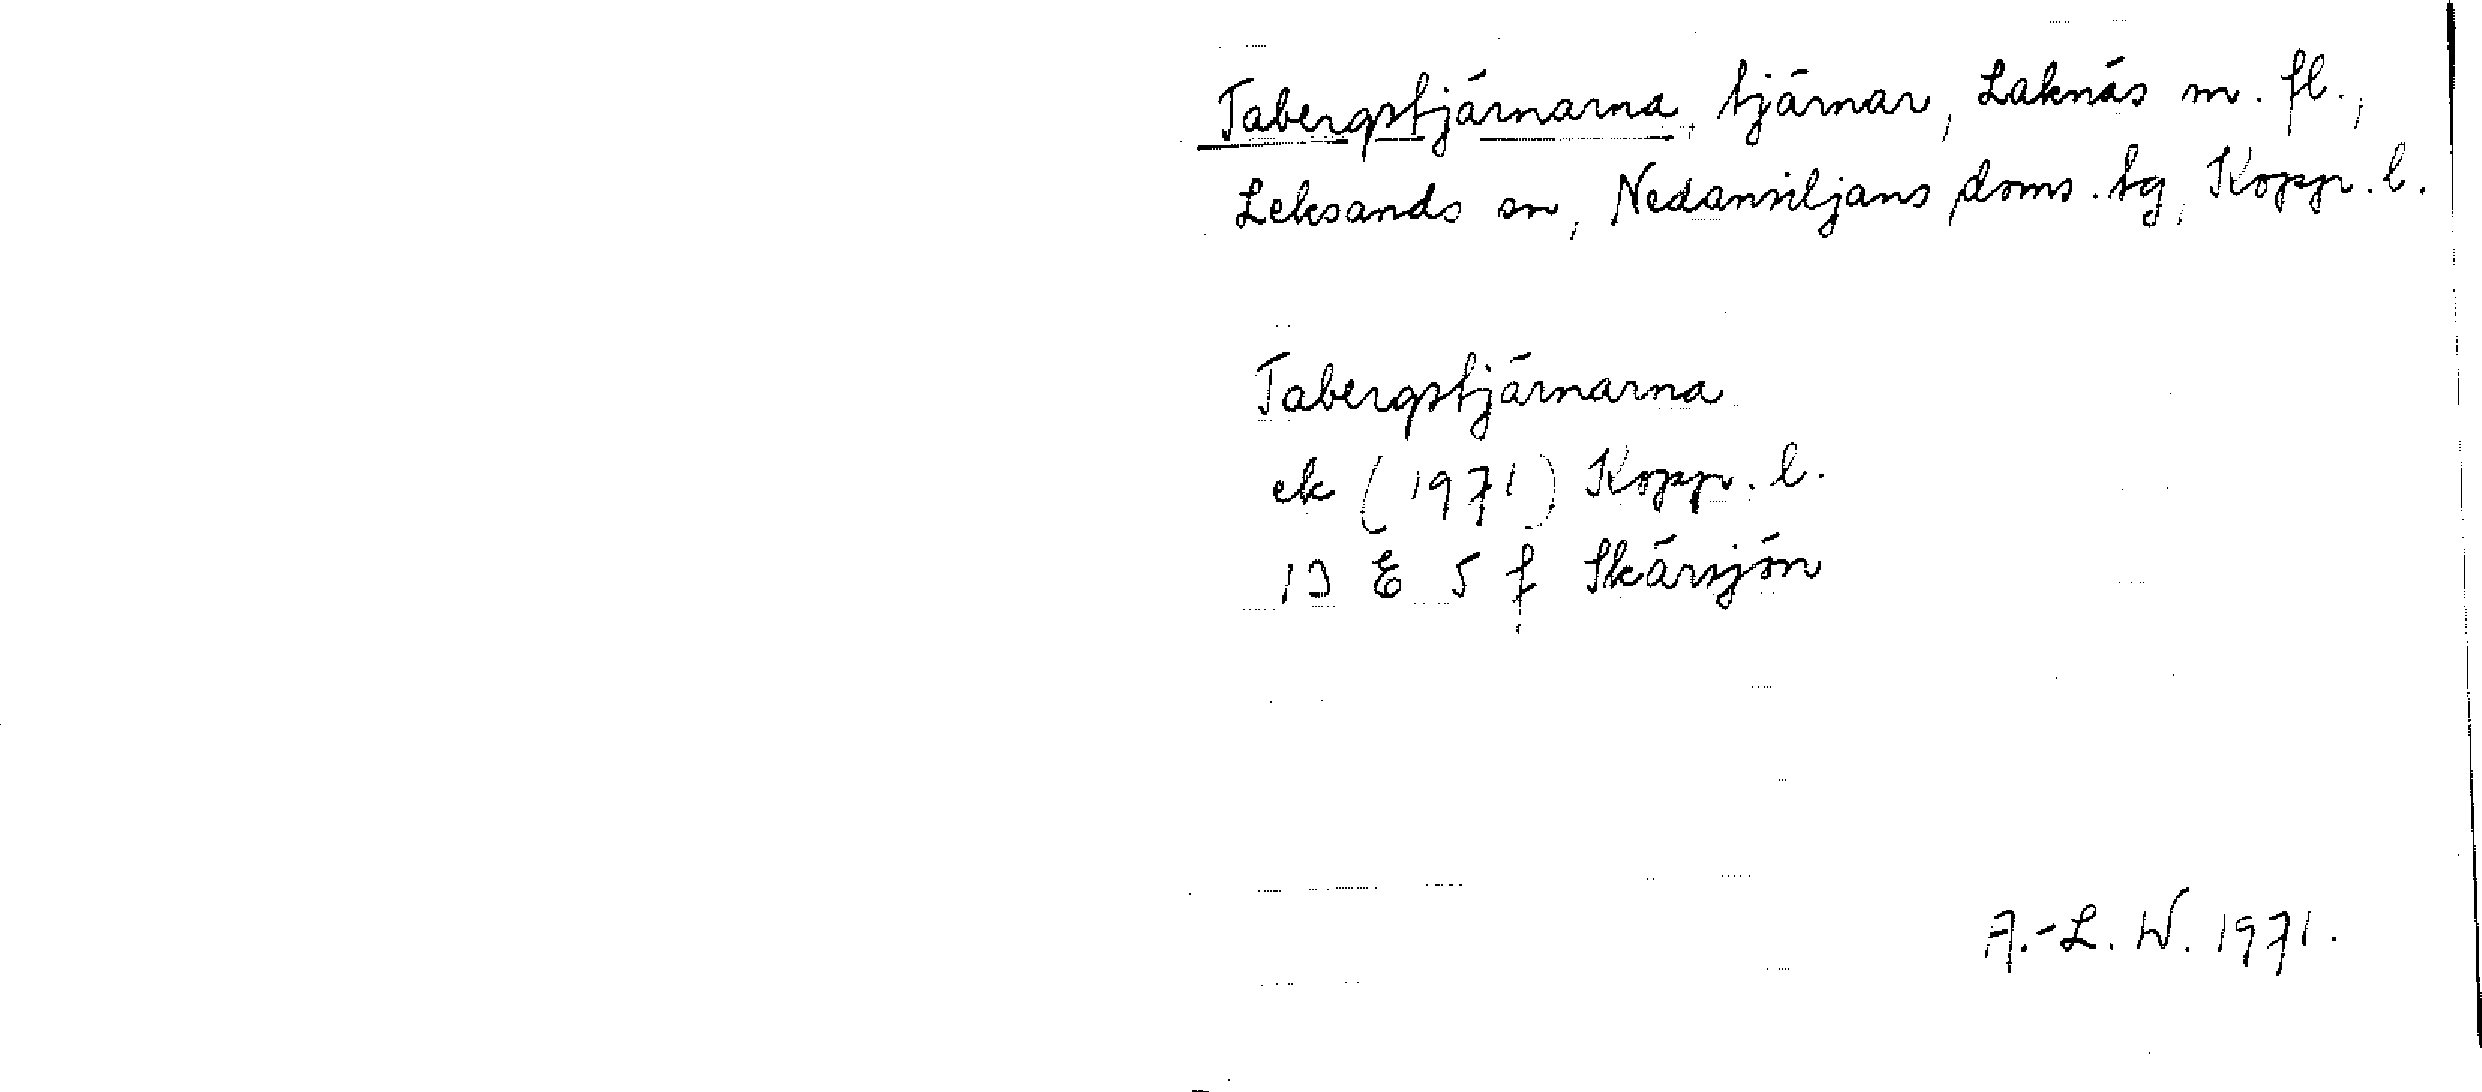 Tabergstjärnarna, tjärnar, Laknäs m. fl.,
Leksands sn, Nedansiljans doms. tg, Kopp. l.
Tabergstjärnarna
ek (1971) Kopp. l.
13 E 5 f Skärsjön
A.-L. W. 1971.